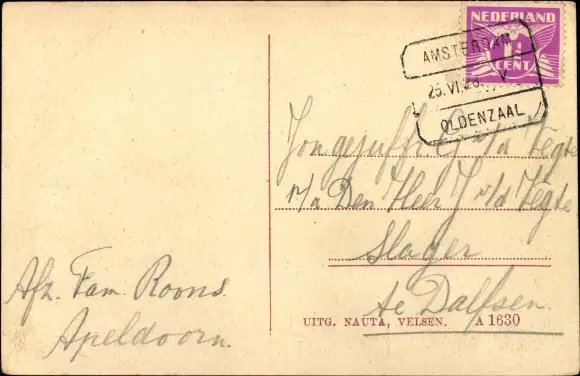 NEDERLAND
1½
CENT
AMSTERDAM
25.VI.28 V
OLDENZAAL
Jongejuffr. G v/d Vegte
p/a Den Heer J v/d Vegte
Slager
te Dalfsen.
Afz. Fam. Roons.
Apeldoorn.
UITG. NAUTA, VELSEN. A 1630